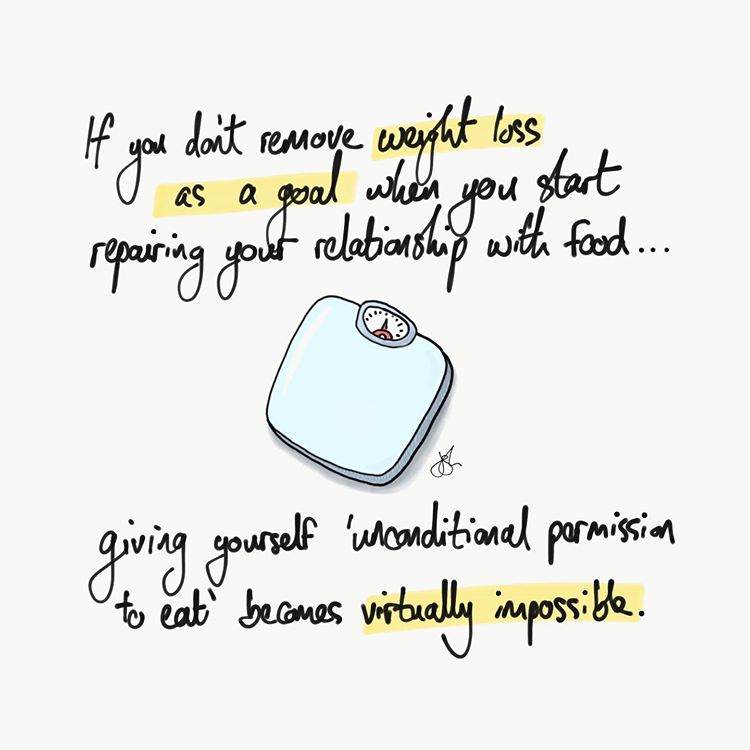 If you don't remove weight loss
as a goal when you start
repairing your relationship with food...
giving yourself 'unconditional permission
to eat' becomes virtually impossible.